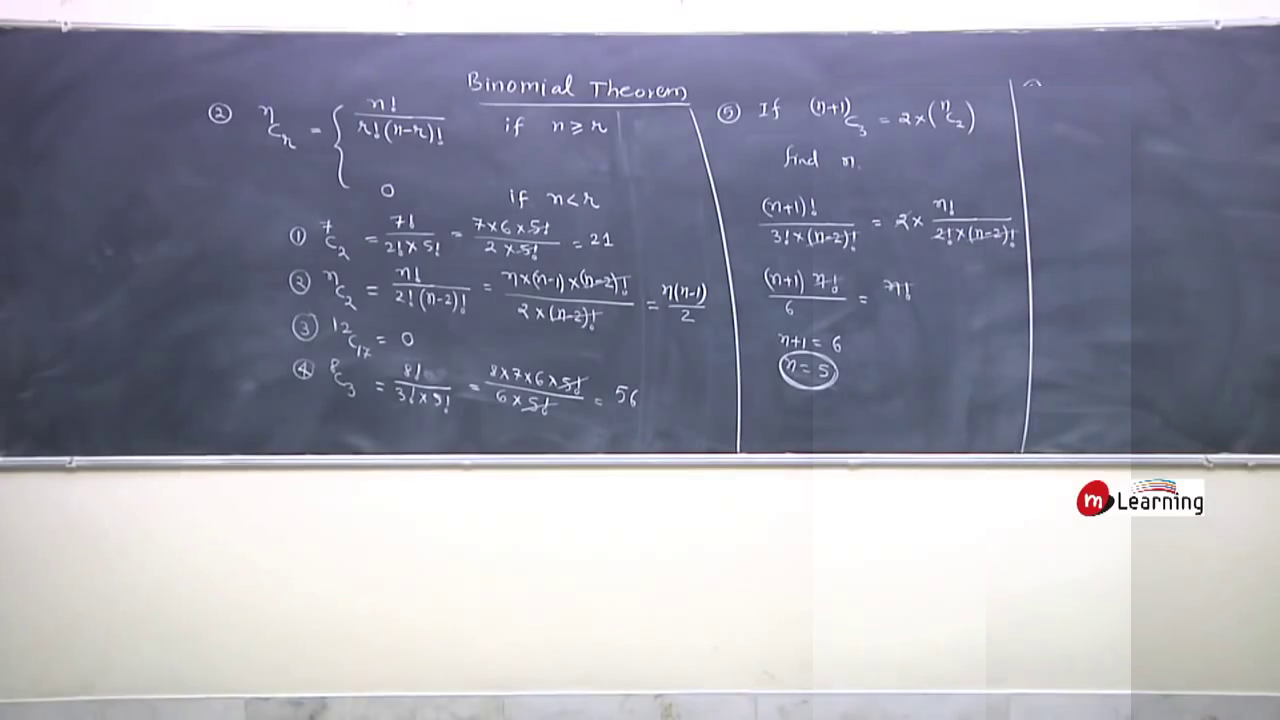 Binomial Theorem
② ⁿCᵣ = { n! / r!(n-r)! if n ≥ r
0 if n < r
① ⁷C₂ = 7! / 2! × 5! = 7 × 6 × 5! / 2 × 5! = 21
② ⁿC₂ = n! / 2! (n-2)! = n × (n-1) × (n-2)! / 2 × (n-2)! = n(n-1) / 2
③ ¹²C₁₇ = 0
④ ⁸C₃ = 8! / 3! × 5! = 8 × 7 × 6 × 5! / 6 × 5! = 56
⑤ If ⁽ⁿ⁺¹⁾C₃ = 2 × (ⁿC₂)
find n.
(n+1)! / 3! × (n-2)! = 2 × n! / 2! × (n-2)!
(n+1) n! / 6 = n!
n+1 = 6
n = 5
m Learning